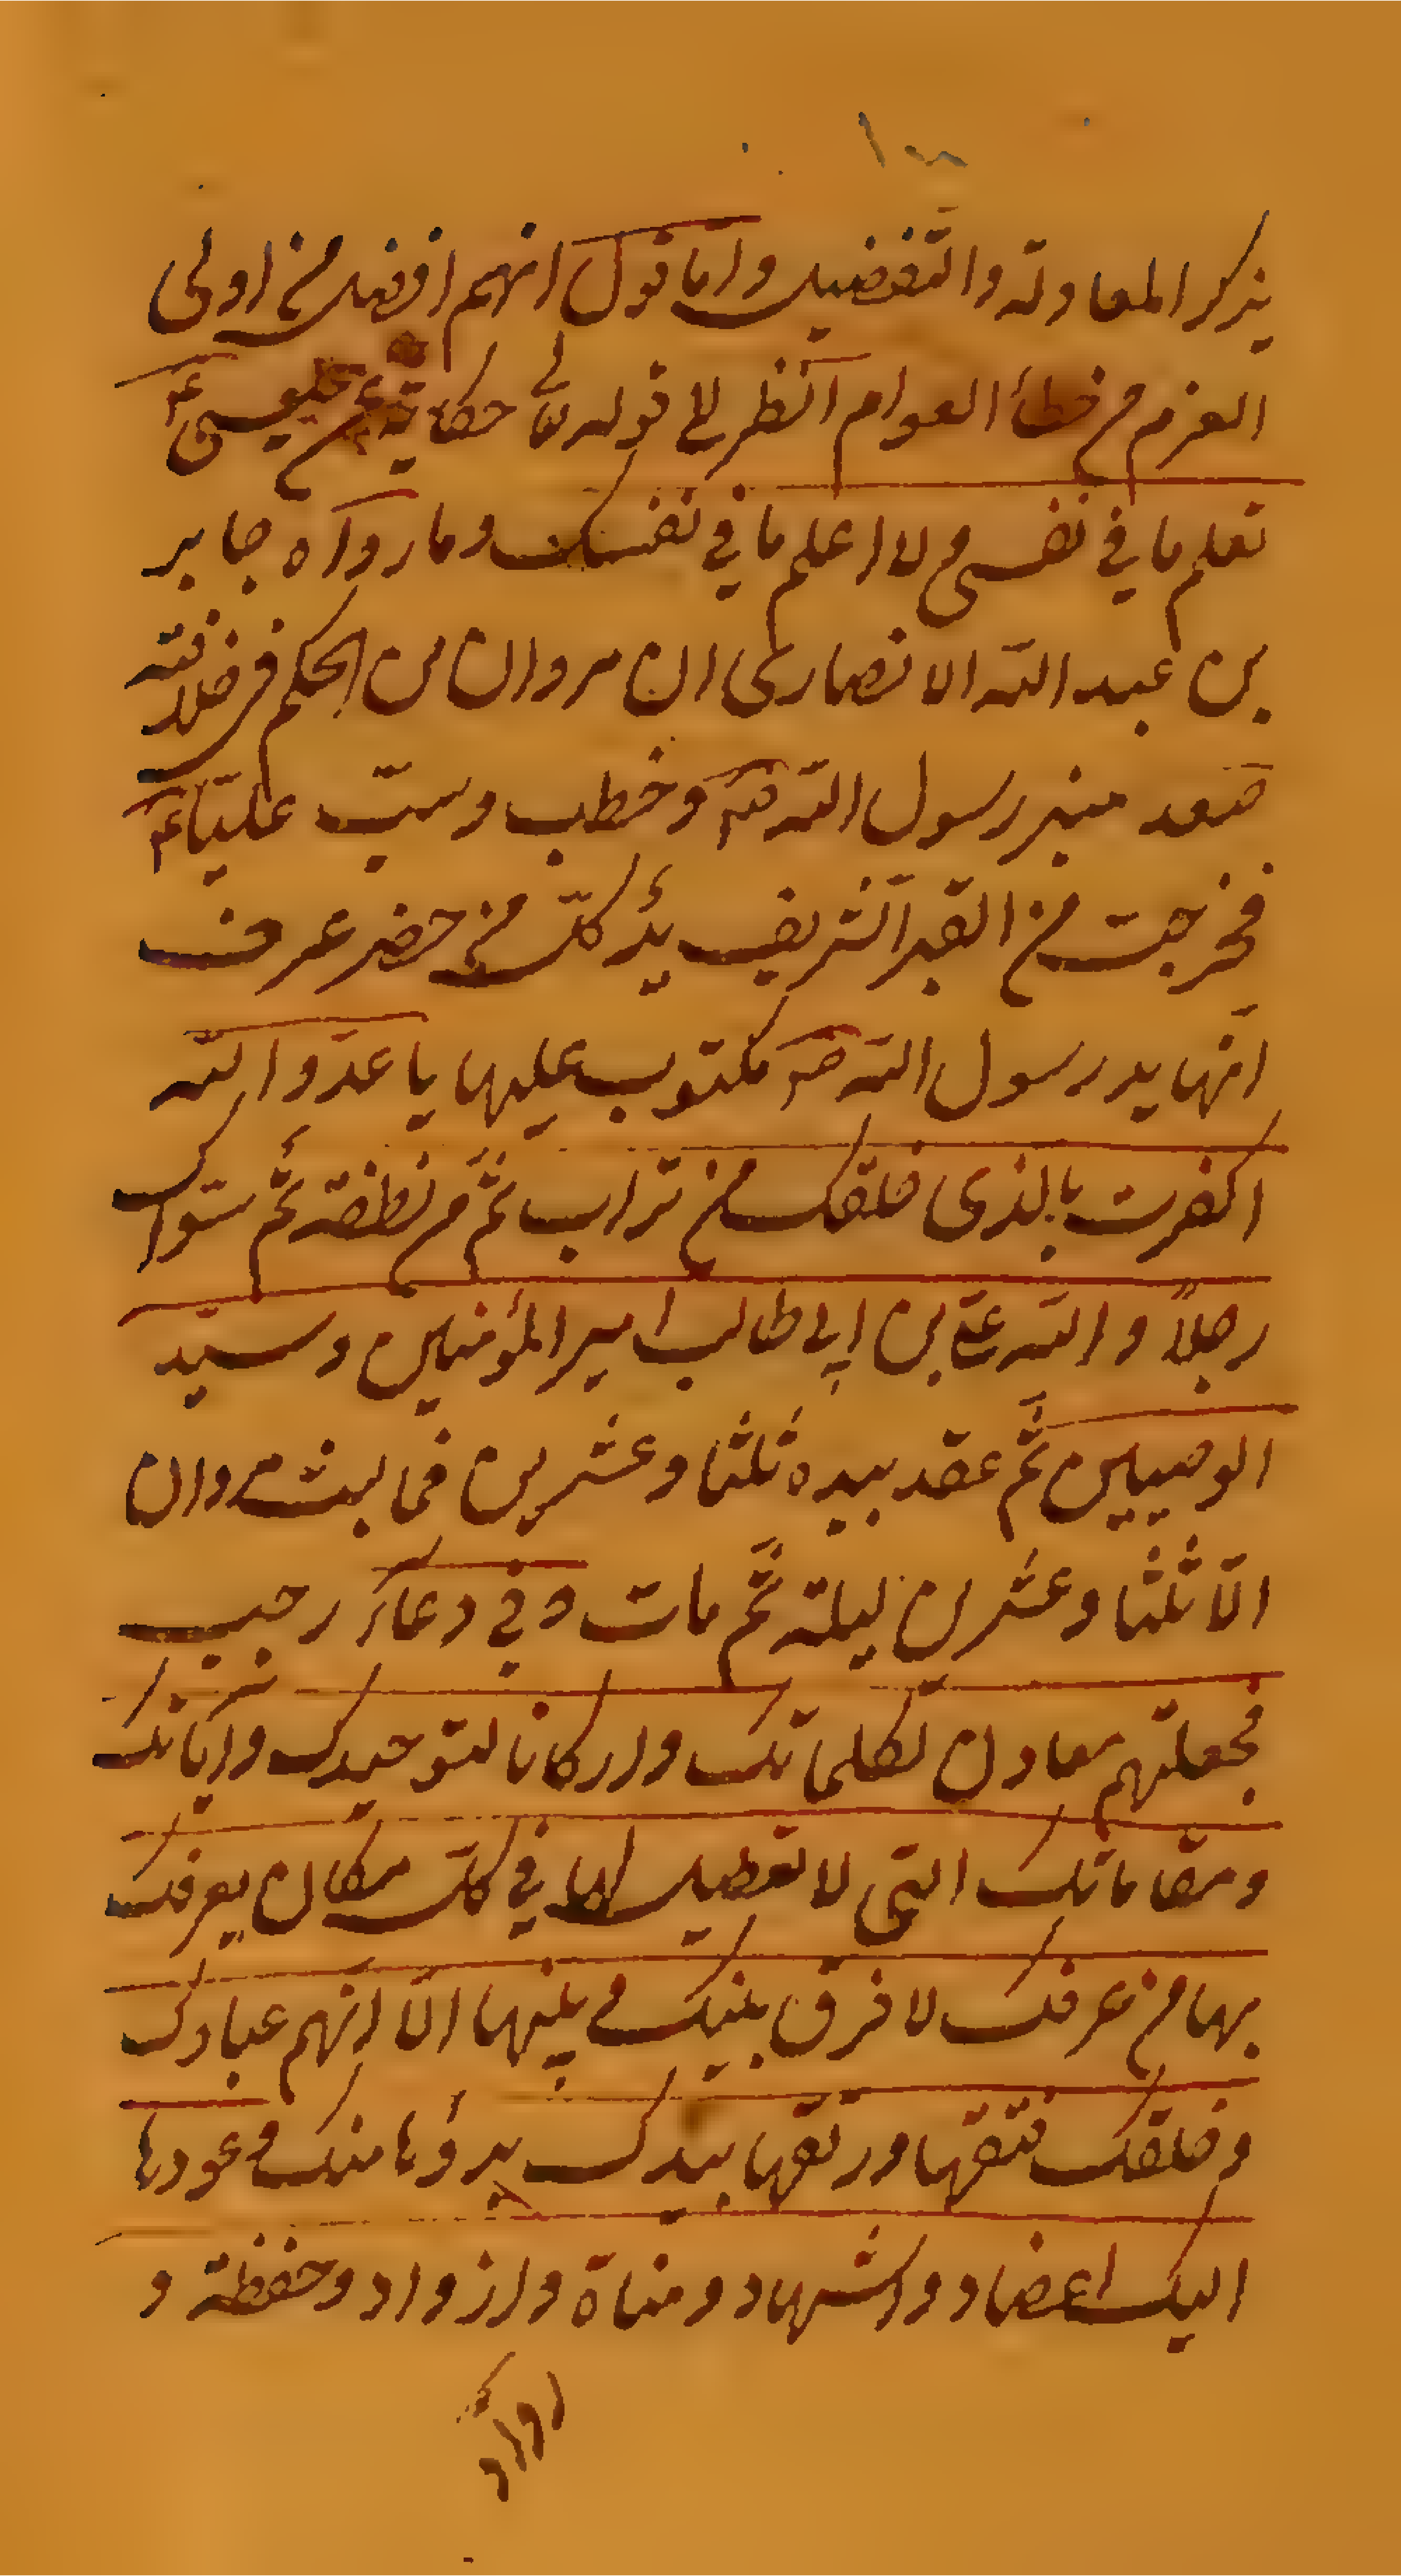 يذكر المعادلة والتفضيل وامّا قول انهم افضل من اولى
العزم من خطأ العوام انظر الى قوله تع حكاية عن عيسى ع
تعلم ما في نفسي ولا اعلم ما في نفسك وما رواه جابر
بن عبد الله الانصارى ان مروان بن الحكم في خلافته
صعد منبر رسول الله ص وخطب وسبّ عليّا ع
فخرجت من القبر الشريف يدٌ كلّ من حضر عرف
انّها يد رسول الله ص مكتوب عليها يا عدوّ الله
اكفرت بالذى خلقك من تراب ثمّ من نطفة ثمّ سوّاك
رجلاً والله علىّ بن ابي طالب امير المؤمنين وسيّد
الوصيين ثمّ عقد بيده ثلثا وعشرين فما لبث مروان
الّا ثلثا وعشرين ليلة ثمّ مات وفي دعاء رجب
فجعلتهم معادن لكلماتك واركانا لتوحيدك وآياتك
ومقاماتك التى لا تعطيل لها في كلّ مكان يعرفك
بها من عرفك لا فرق بينك وبينها الّا انّهم عبادك
وخلقك فتقها ورتقها بيدك بدؤها منك وعودها
اليك اعضاد واشهاد ومناة وازواد وحفظة و
روّاد